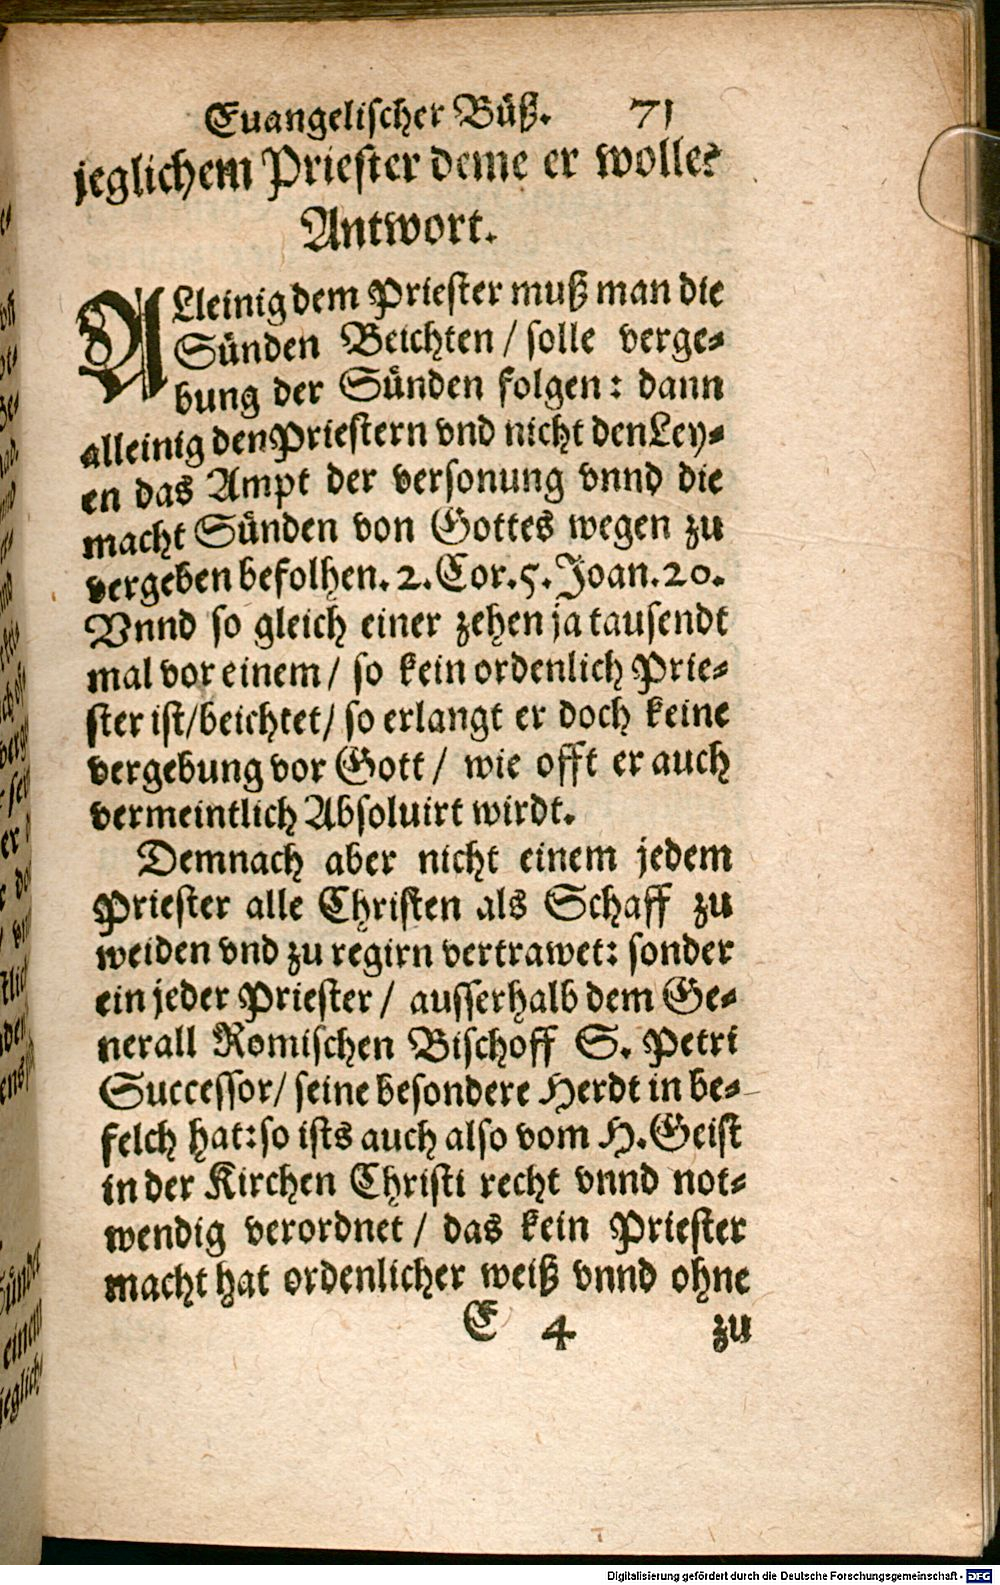 Euangelischer Büß. 71
jeglichem Priester deme er wolle?
Antwort.
ALleinig dem Priester muß man die
Sünden Beichten / solle verge⸗
bung der Sünden folgen: dann
alleinig den Priestern vnd nicht den Ley⸗
en das Ampt der versonung vnnd die
macht Sünden von Gottes wegen zu
vergeben befolhen. 2. Cor. 5. Joan. 20.
Vnnd so gleich einer zehen ja tausendt
mal vor einem / so kein ordenlich Prie⸗
ster ist/ beichtet/ so erlangt er doch keine
vergebung vor Gott / wie offt er auch
vermeintlich Absoluirt wirdt.
Demnach aber nicht einem jedem
Priester alle Christen als Schaff zu
weiden vnd zu regirn vertrawet: sonder
ein jeder Priester / ausserhalb dem Ge⸗
nerall Romischen Bischoff S. Petri
Successor/ seine besondere Herdt in be⸗
felch hat: so ists auch also vom H. Geist
in der Kirchen Christi recht vnnd not⸗
wendig verordnet / das kein Priester
macht hat ordenlicher weiß vnnd ohne
E 4 zu
Digitalisierung gefördert durch die Deutsche Forschungsgemeinschaft - DFG